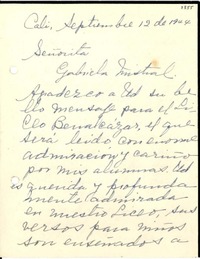 1888
Cali, Septiembre 12 de 1944
Señorita
Gabriela Mistral.
Agradezco a Ud su be
llo mensaje para el Li-
ceo Benalcázar, el que
será leído con enorme
admiración y cariño
por mis alumnas. Ud
es querida y profunda
mente admirada
en nuestro Liceo, sus
versos para niños
son enseñados a